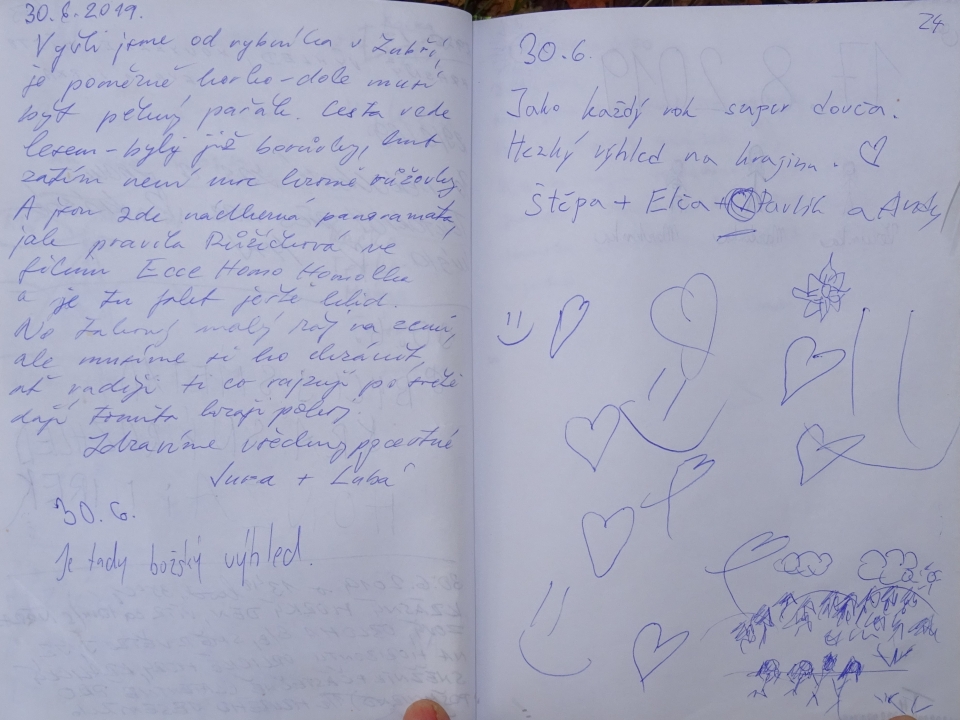 30.6.2019.
Vyšli jsme od rybníka v Zubří,
je poměrně horko - dole musí
být pěkný pařák. Cesta vede
lesem - byly již borůvky, chuť
zatím není moc
A jsou zde nádherná panoramata,
jak pravila Růžičková ve
filmu Ecce Homo Homolka
a je tu fakt ještě klid.
No takový malý ráj na zemi,
ale musíme si ho chránit,
ať raději ti co rajzují po světě
dají tomuto kraji pokoj.
Zdravíme všechny poctivé
Jura + Luba
30.6.
Je tady božský výhled.
24
30.6.
Jako každý rok super dovča.
Hezký výhled na krajinu.
Štěpa + Elča + Pavlík a Andy